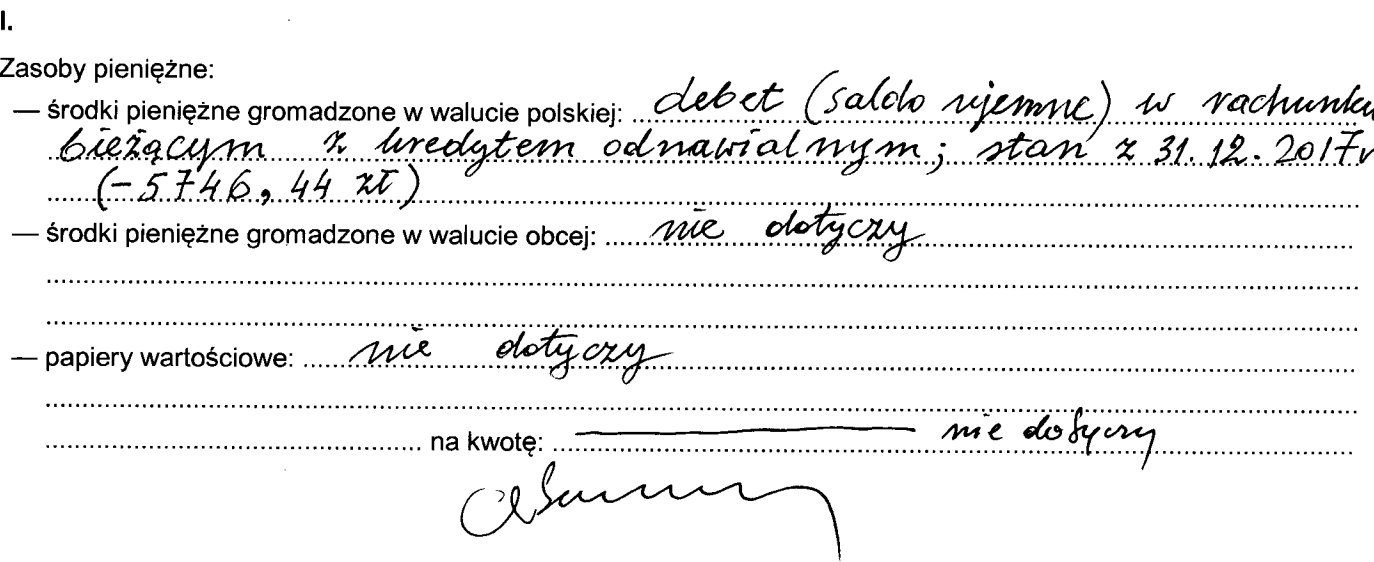 I.
Zasoby pieniężne:
— środki pieniężne gromadzone w walucie polskiej: debet (saldo ujemne) w rachunku
bieżącym z kredytem odnawialnym; stan z 31.12.2017r
(-5746,44 zł)
— środki pieniężne gromadzone w walucie obcej: nie dotyczy
— papiery wartościowe: nie dotyczy
na kwotę: nie dotyczy